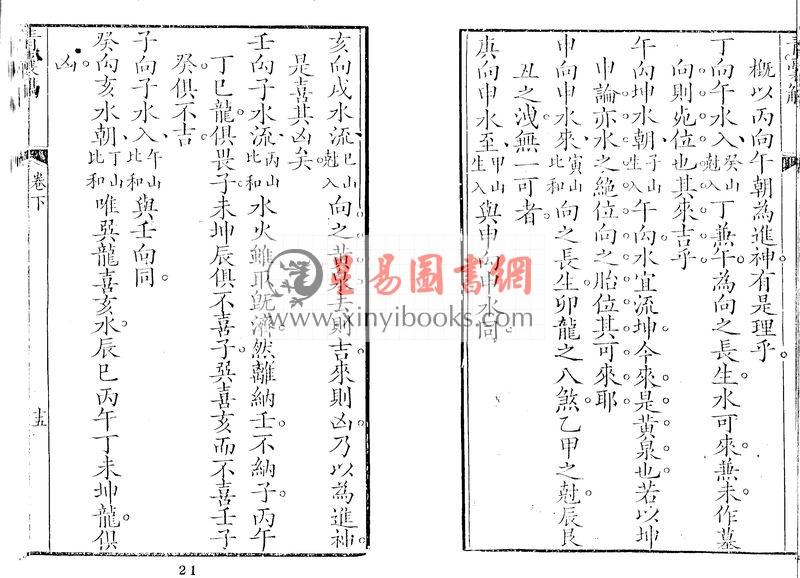 槪以丙向午朝為進神有是理乎
丁向午水入癸山尅入丁兼午為向之長生水可來兼未作墓
向則死位也其來吉乎
午向坤水朝子山生入午向水宜流坤今來是黃泉也若以坤
申論亦水之絶位向之胎位其可來耶
申向申水來寅山比和向之長生卯龍之八煞乙甲之尅辰艮
丑之洩無一可者
庚向申水至甲山生入與申向申水同
亥向戌水流巳山尅入向之黃泉去則吉來則凶乃以為進神
是喜其凶矣
壬向子水流丙山比和水火雖取既濟然離納壬不納子丙午
丁巳龍俱畏子未坤辰俱不喜子巽喜亥而不喜壬子
癸俱不吉
子向子水入午山比和與壬向同
癸向亥水朝丁山比和唯巽龍喜亥水辰巳丙午丁未坤龍俱
凶
卷下
十五
21
易圖書網
www.xinyibooks.com